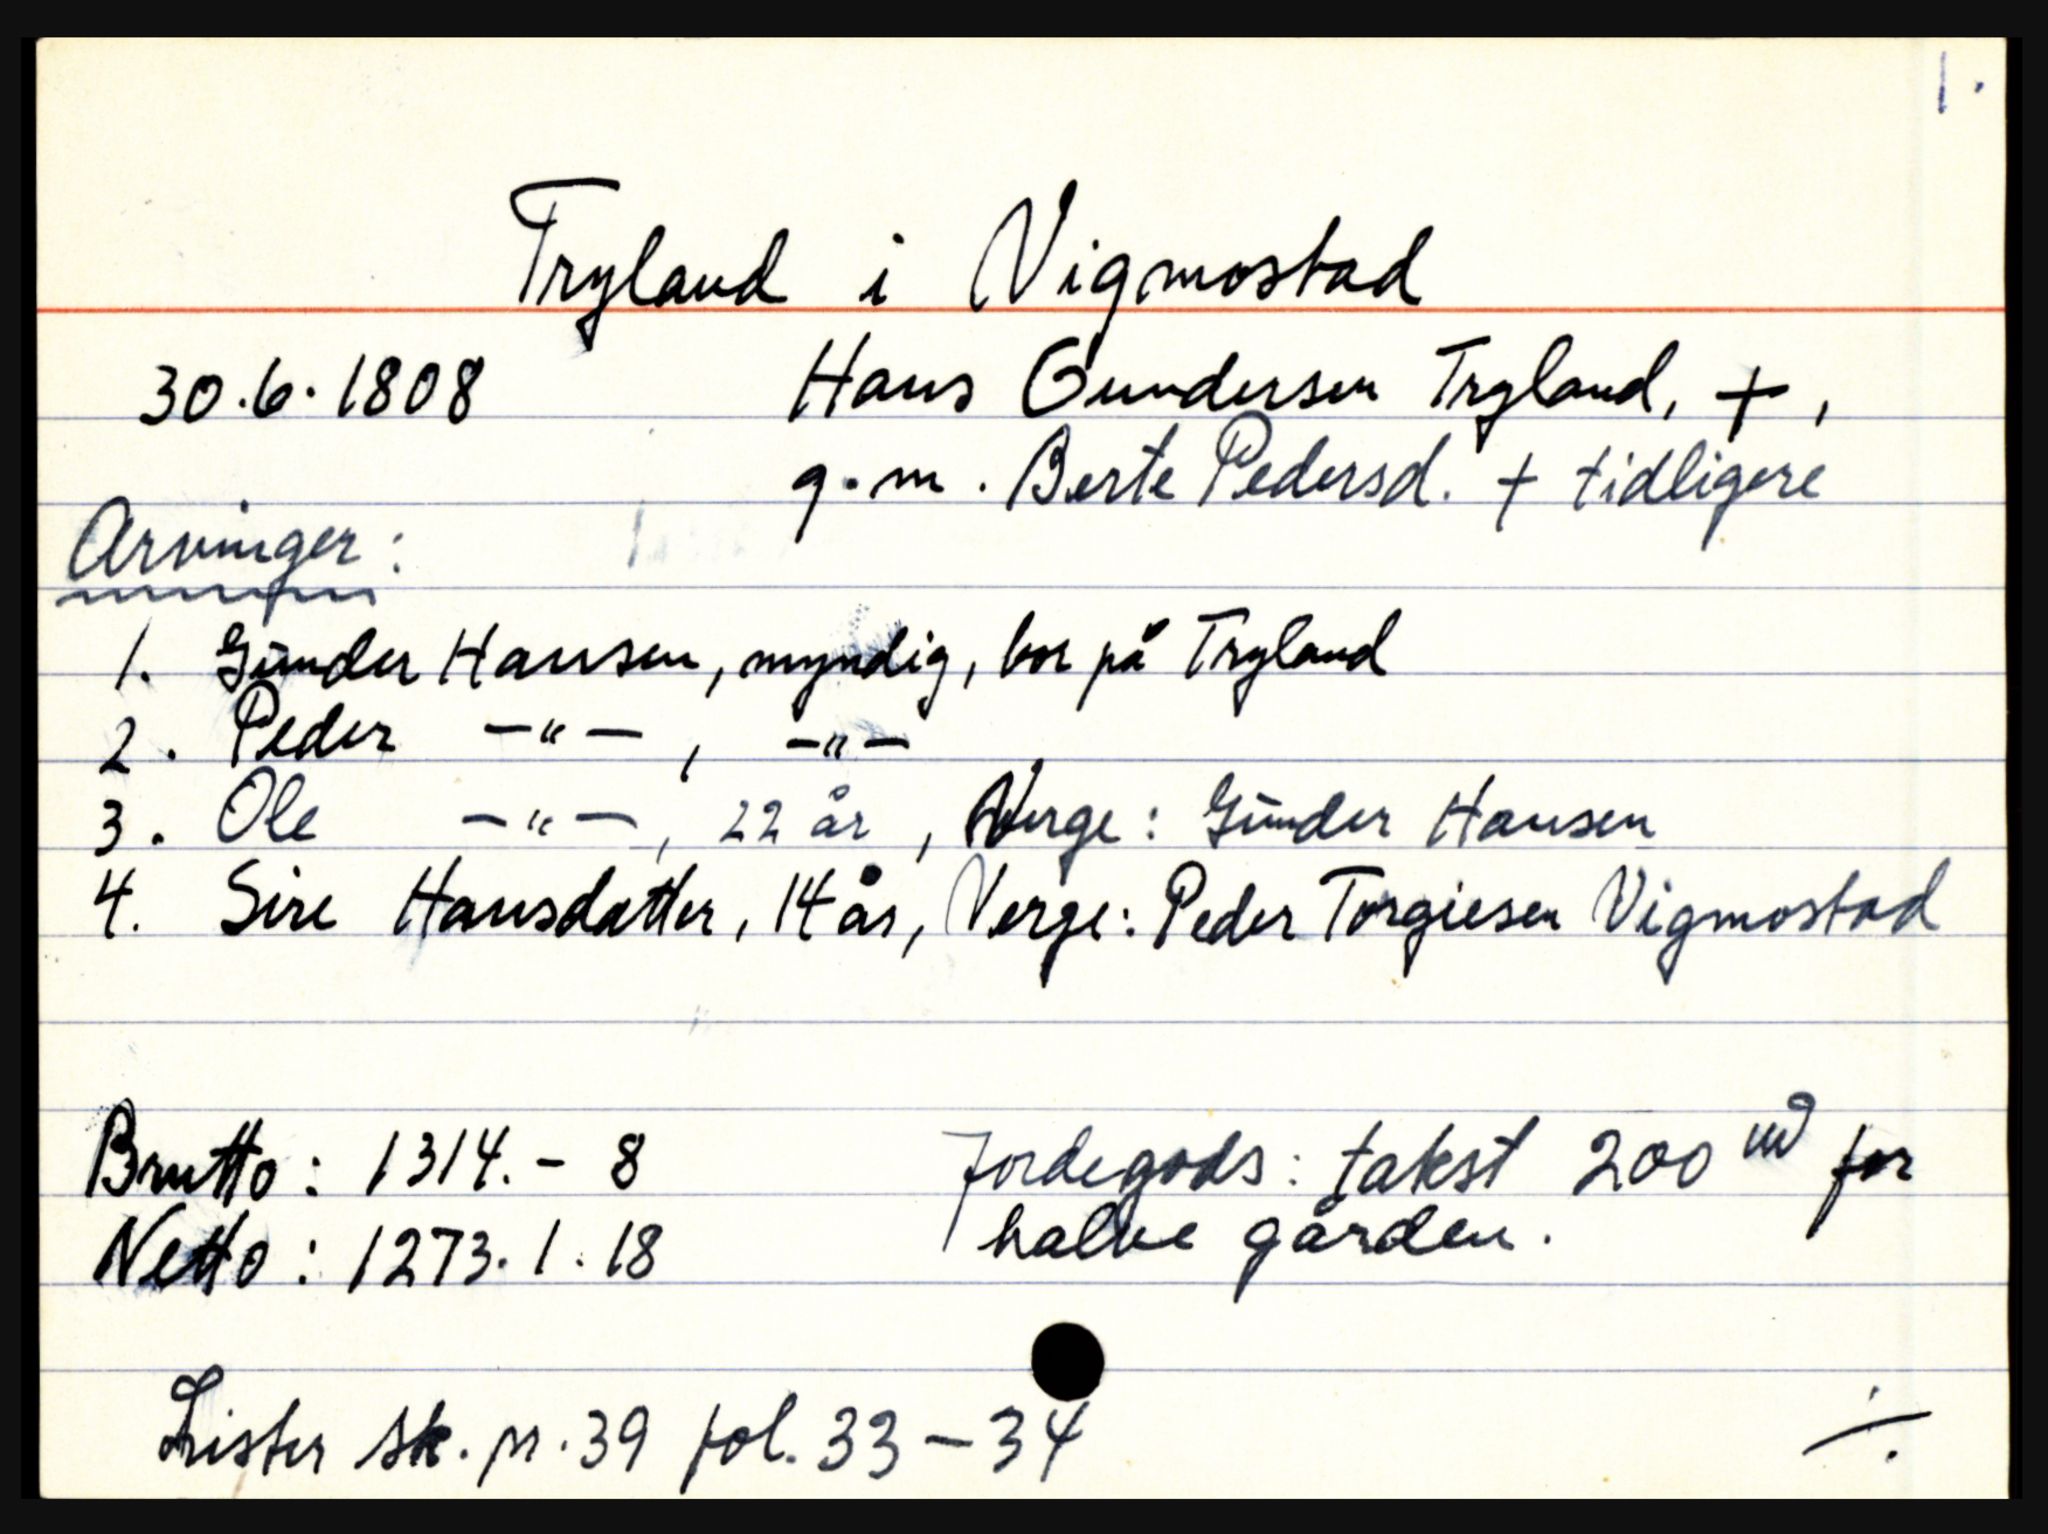 1.
Tryland i Vigmostad
30.6.1808 Hans Gundersen Tryland, +,
g.m. Berte Pedersd. + tidligere
Arvinger:
1. Gūnder Hansen, myndig, bor på Tryland
2. Peder -"-, -"-
3. Ole -"-, 22 år, Verge: Gūnder Hansen
4. Sire Hansdatter, 14 år, Verge: Peder Torgiesen Vigmostad
Brutto: 1314.- 8 Jordegods: takst 200 rd for
Netto: 1273.1.18 halve gården.
Lister sk.pr.39 fol. 33-34 ÷